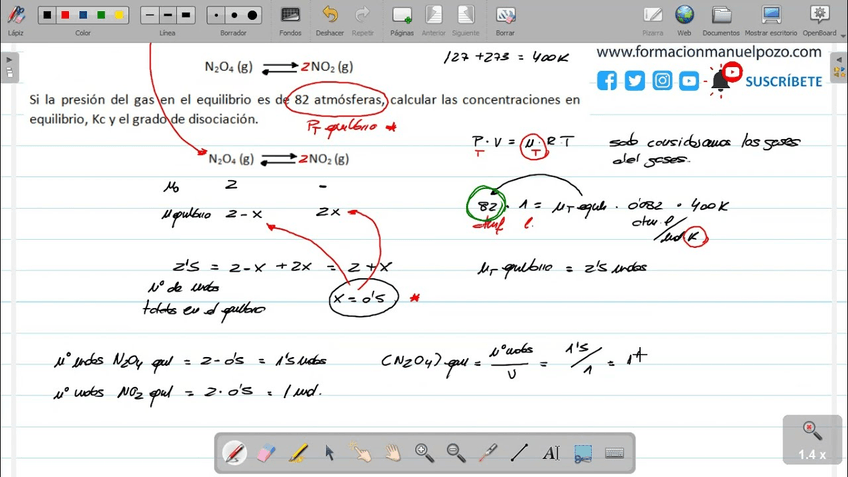 Lápiz Color Línea Borrador Fondos Deshacer Repetir Páginas Anterior Siguiente Borrar Pizarra Web Documentos Mostrar escritorio OpenBoard
N₂O₄ (g) ⇌ 2NO₂ (g)
127 + 273 = 400K
www.formacionmanuelpozo.com
SUSCRÍBETE
Si la presión del gas en el equilibrio es de 82 atmósferas, calcular las concentraciones en
equilibrio, Kc y el grado de disociación.
PT equilibrio *
N₂O₄ (g) ⇌ 2NO₂ (g)
P · V = n · R · T
T T
solo consideramos los gases
del gases.
n₀ 2 -
n equilibrio 2-x 2x
82 · 1 = nT equil · 0'082 · 400K
atm l. atm·l/mol K
2'5 = 2-x + 2x = 2+x
nº de moles
totales en el equilibrio
x = 0'5 *
nT equilibrio = 2'5 moles
nº moles N₂O₄ equil = 2-0'5 = 1'5 moles
(N₂O₄) equil = nº moles/V = 1'5/1 = 1
nº moles NO₂ equil = 2·0'5 = 1 mol.
1.4 x